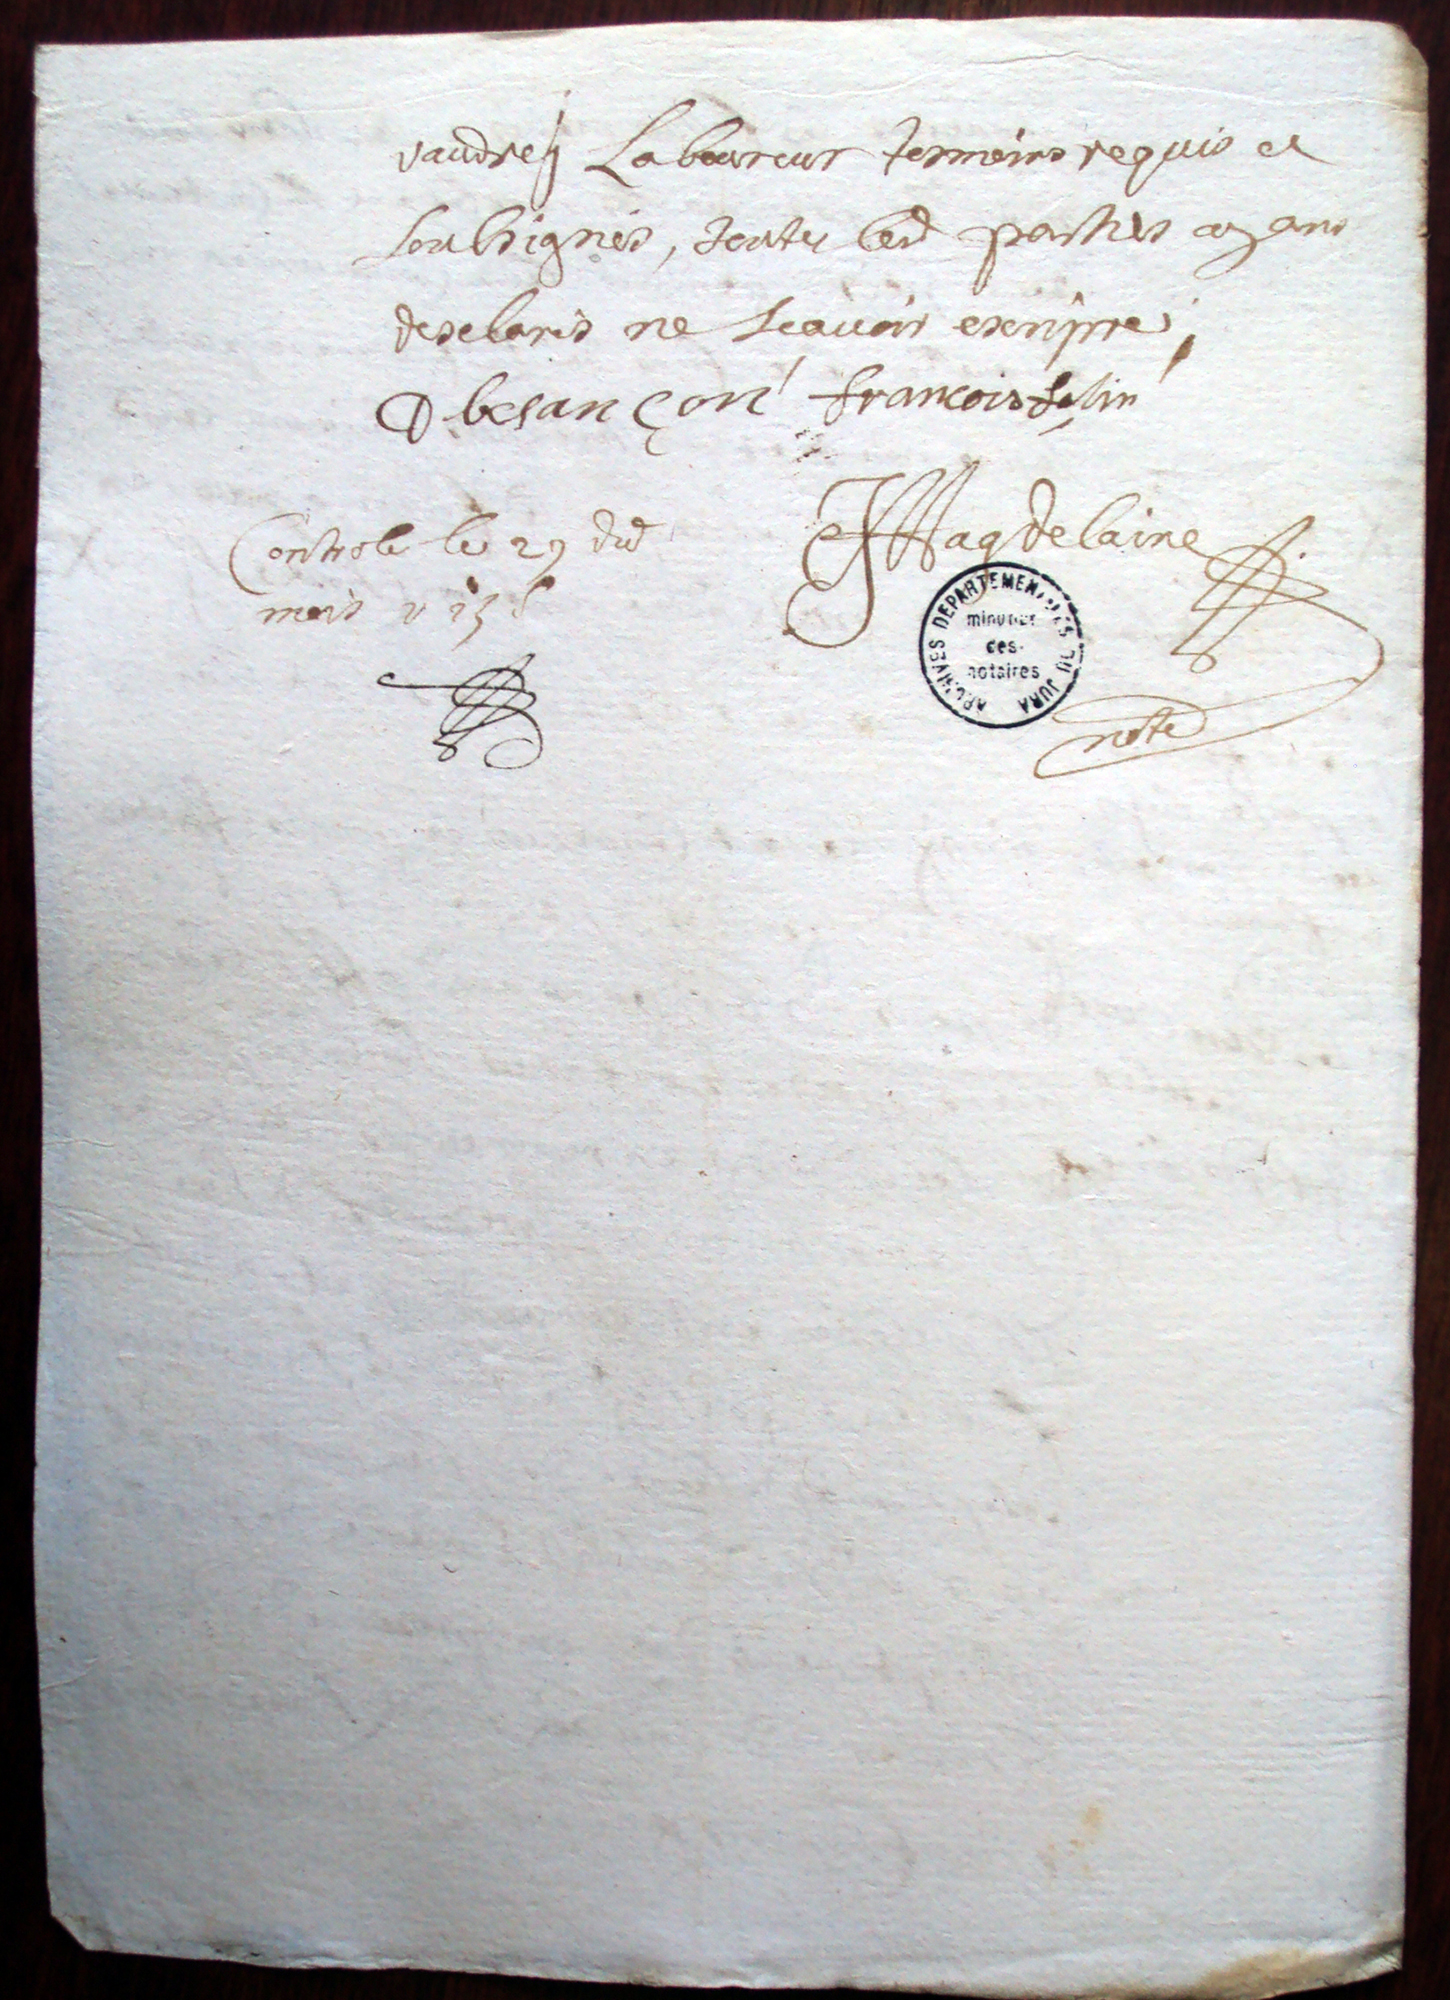 vaudrey Laboureur tesmoins requis et
soubsignés, toutes lesd parties ayans
desclarés ne scavoir escripre,
D besançon francois
Controle le 29 dud
mois
JMagdelaine
ARCHIVES DEPARTEMENTALES DU JURA
minutier
des
notaires
notre